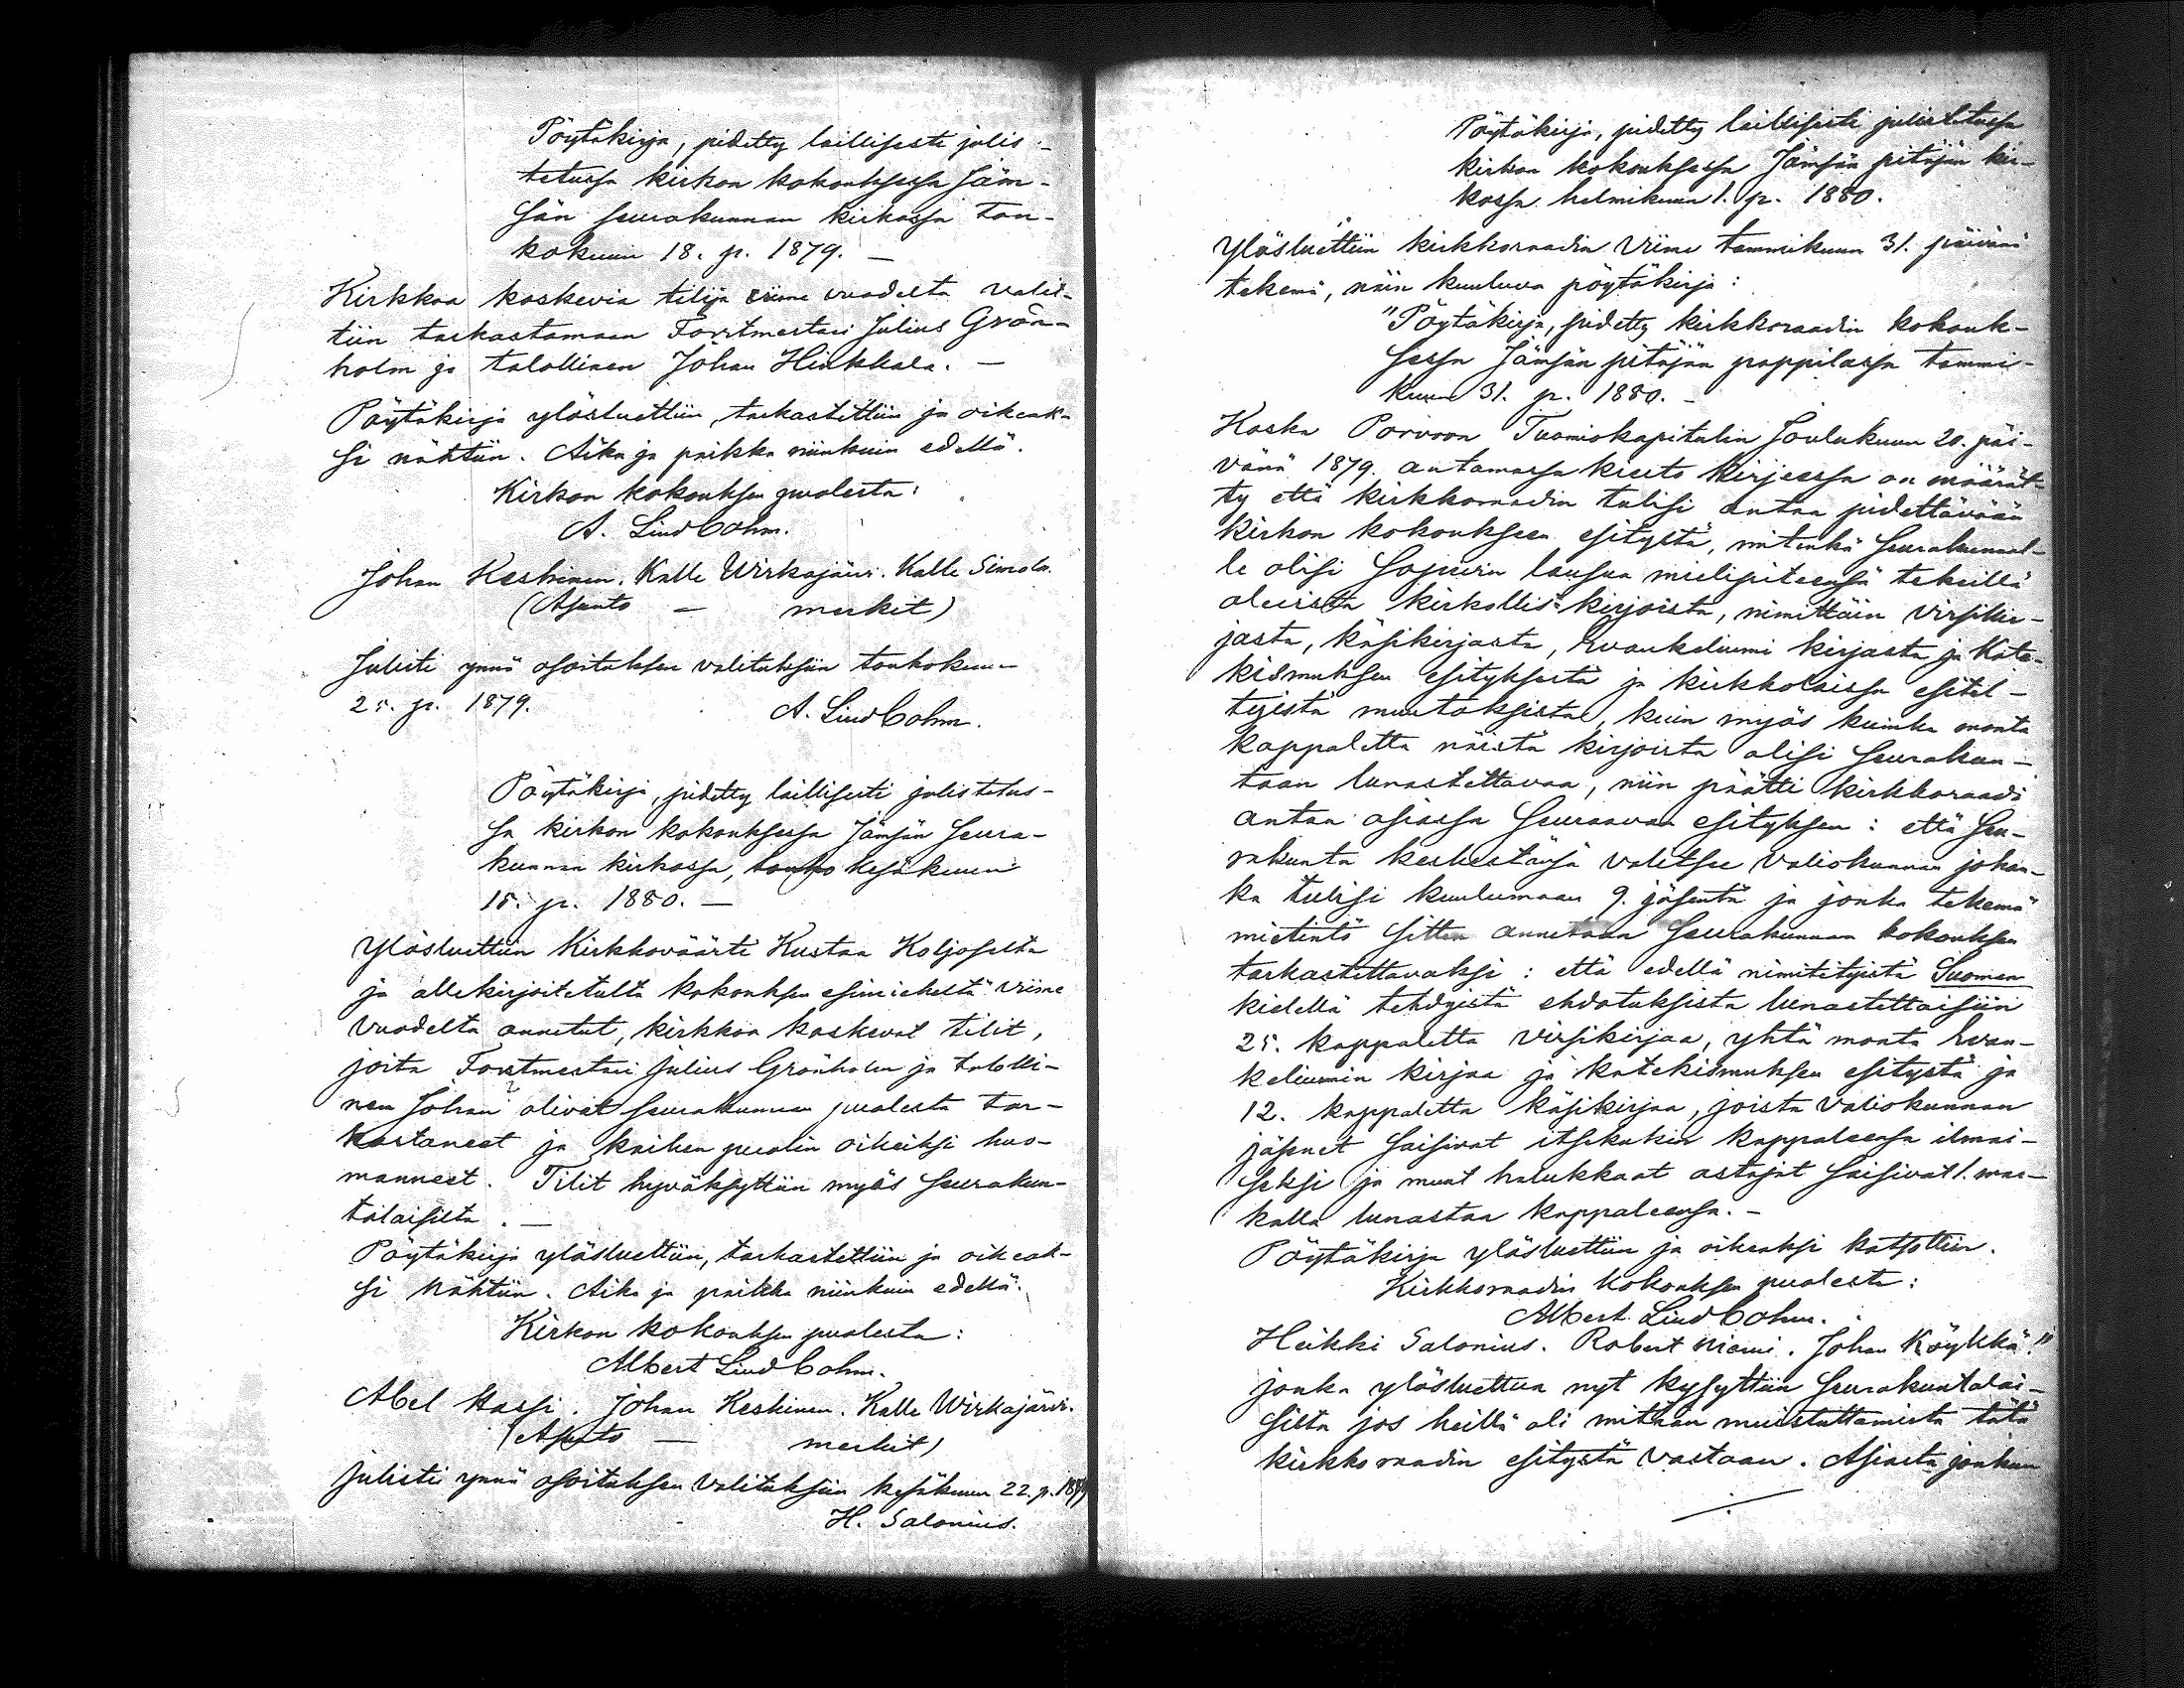 Pöytäkirja, pidetty laillisesti julis-
tetussa kirkon kokouksessa Jäm-
sän seurakunnan kirkossa tou-
kokuun 18. p. 1879. —
Kirkkoa koskevia tilijä viime vuodelta valit-
tiin tarkastamaan Forstmestari Julius Grön-
holm ja talollinen Johan Hinkkala. —
Pöytäkirja ylösluettiin, tarkastettiin ja oikeak-
si nähtiin. Aika ja paikka niinkuin edellä.
Kirkon kokouksen puolesta:
A. Lindbohm.
Johan Keskinen. Kalle Wirkajärvi. Kalle Simola.
(Asunto — merkit)
Julisti ynnä osoituksen valituksiin toukokuun
25. p. 1879.
A. Lindbohm.
Pöytäkirja, pidetty laillisesti julistetus-
sa kirkon kokouksessa Jämsän seura-
kunnan kirkossa, kesäkuun
15. p. 1880. —
Ylösluettiin Kirkkoväärti Kustaa Koljoselta
ja allekirjoitetulta kokouksen esimieheltä viime
vuodelta annetut, kirkkoa koskevat tilit,
joita Forstmestari Julius Grönholm ja talolli-
nen Johan ? olivat seurakunnan puolesta tar-
kastaneet ja kaiken puolin oikeiksi huo-
manneet. Tilit hyväksyttiin myös seurakun-
talaisilta. —
Pöytäkirja ylösluettiin, tarkastettiin ja oikeak-
si nähtiin. Aika ja paikka niinkuin edellä.
Kirkon kokouksen puolesta:
Albert Lindbohm.
Abel Hassi. Johan Keskinen. Kalle Wirkajärvi.
(Asunto — merkit)
Julisti ynnä osoituksen valituksiin kesäkuun 22. p. 1879
H. Salonius.
Pöytäkirja, pidetty laillisesti julistetussa
kirkon kokouksessa Jämsän pitäjän kir-
kossa helmikuun 1. p. 1880.
Ylösluettiin kirkkoraadin viime tammikuun 31. päivänä
tekemä, näin kuuluva pöytäkirja:
"Pöytäkirja, pidetty kirkkoraadin kokouk-
sessa Jämsän pitäjän pappilassa tammi-
kuun 31. p. 1880. —
Koska Porvoon Tuomiokapitulin Joulukuun 20. päi-
vänä 1879. antamassa kierto kirjeessä on määrät-
ty että kirkkoraadin tulisi antaa pidettävään
kirkon kokoukseen esitystä, mitenkä seurakunnal-
le olisi sopivin lausua mielipiteensä tekeillä
olevista kirkollis-kirjoista, nimittäin virsikir-
jasta, käsikirjasta, Evankeliumi kirjasta ja Kate-
kismuksen esityksestä ja kirkkolaissa esitel-
tyistä muutoksista, kuin myös kuinka monta
kappaletta näistä kirjoista olisi seurakun-
taan lunastettavaa, niin päätti kirkkoraadi
antaa asiassa seuraavan esityksen: että seu-
rakunta keskestänsä valitsee valiokunnan johon-
ka tulisi kuulumaan 9. jäsentä ja jonka tekemä
mietintö sitten annetaan seurakunnan kokouksen
tarkastettavaksi: että edellä nimitetyistä Suomen
kielellä tehdyistä ehdotuksista lunastettaisiin
25. kappaletta virsikirjaa, yhtä monta Evan-
keliumin kirjaa ja katekismuksen esitystä ja
12. kappaletta käsikirjaa, joista valiokunnan
jäsenet saisivat itsekukin kappaleensa ilmai-
seksi ja muut halukkaat ostajat saisivat 1. mar-
kalla lunastaa kappaleensa. —
Pöytäkirja ylösluettiin ja oikeaksi katsottiin.
Kirkkoraadin kokouksen puolesta:
Albert Lindbohm.
Heikki Salonius. Robert Niemi. Johan Köykkä."
jonka ylösluettua nyt kysyttiin seurakuntalai-
silta jos heillä oli mitään muistuttamista tätä
kirkkoraadin esitystä vastaan. Asiasta jonkun